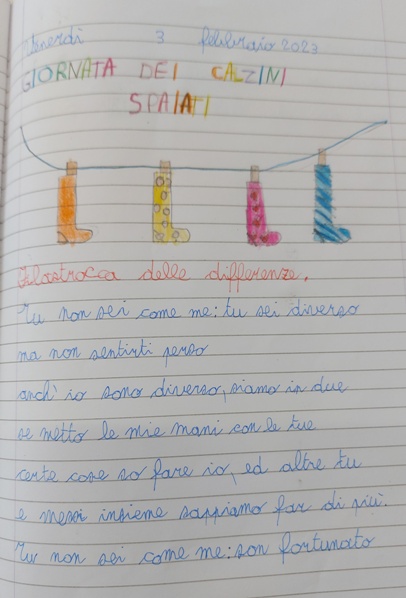 Venerdì 3 febbraio 2023
GIORNATA DEI CALZINI
SPAIATI
Filastrocca delle differenze.
Tu non sei come me: tu sei diverso
ma non sentirti perso
anch' io sono diverso, siamo in due
se metto le mie mani con le tue
certe cose so fare io, ed altre tu
e messi insieme sappiamo far di più.
Tu non sei come me: son fortunato